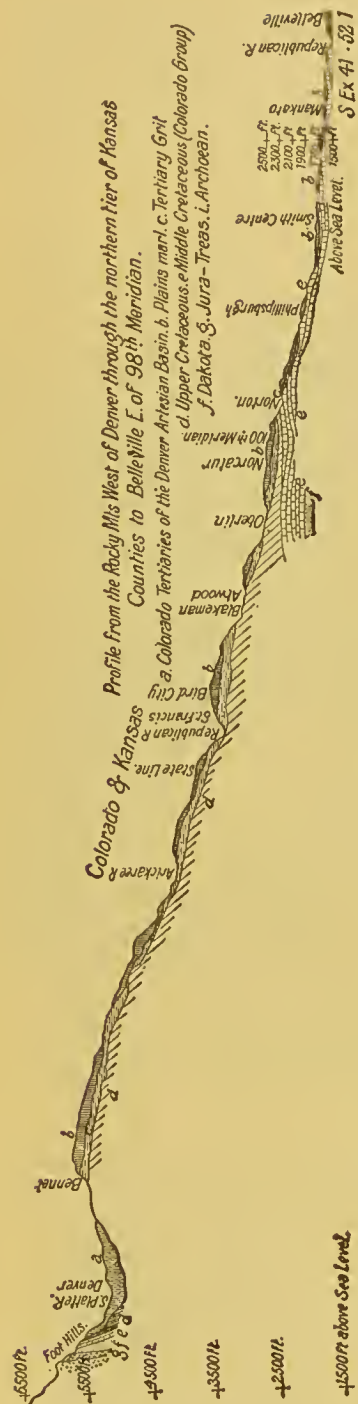 Profile from the Rocky Mts West of Denver through the northern tier of Kansas
Counties to Belleville E. of 98th Meridian.
a. Colorado Tertiaries of the Denver Artesian Basin. b. Plains marl. c. Tertiary Grit
d. Upper Cretaceous. e Middle Cretaceous (Colorado Group)
f. Dakota. g. Jura-Treas. i. Archoean.
Colorado & Kansas
6500 Ft.
5500 Ft.
4500 Ft.
3500 Ft.
2500 Ft.
1500 Ft above Sea Level
Foot Hills.
S. Platte R.
Denver
Bennet
Arickaree R
State Line.
Republican R
St. Francis
Bird City
Blakeman
Atwood
Oberlin
Norcatur
100th Meridian.
Norton.
Phillipsburgh
Smith Centre
Mankato
Republican R.
Belleville
2500 Ft.
2300 Ft.
2100 Ft
1900 Ft
1500 Ft
Above Sea Level.
g f e d
a
b
c
d
d
b
b
e
f
e
e
b
b
S Ex 41 . 52 1